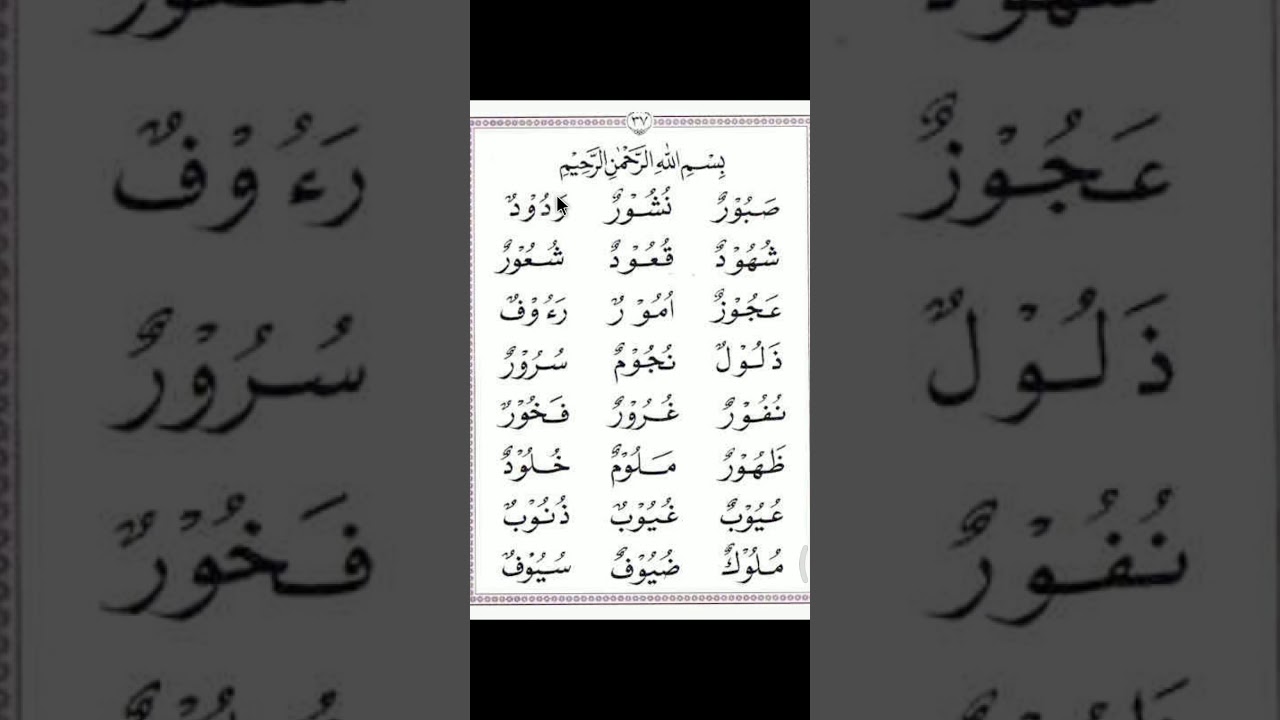 ٣٧
بِسْمِ اللهِ الرَّحْمٰنِ الرَّحِيْمِ
صَبُوْرٌ نُشُوْرٌ وَدُوْدٌ
شُهُوْدٌ قُعُوْدٌ شُعُوْرٌ
عَجُوْزٌ اُمُوْرٌ رَءُوْفٌ
ذَلُوْلٌ نُجُوْمٌ سُرُوْرٌ
نُفُوْرٌ غُرُوْرٌ فَخُوْرٌ
ظَهُوْرٌ مَلُوْمٌ خُلُوْدٌ
عُيُوْبٌ غُيُوْبٌ ذُنُوْبٌ
مُلُوْكٌ ضُيُوْفٌ سُيُوْفٌ